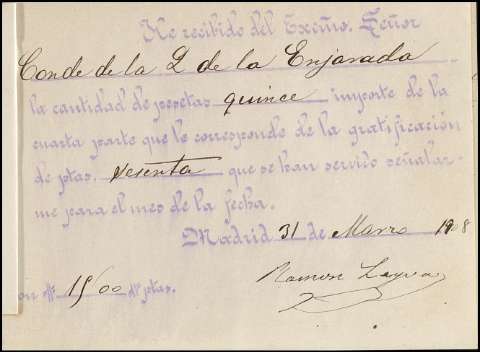 He recibido del Excmo. Señor
Conde de la Q de la Enjarada
la cantidad de pesetas quince importe de la
cuarta parte que le corresponde de la gratificación
de ptas. sesenta que se han servido señalar-
me para el mes de la fecha.
Madrid 31 de Marzo 19 8
Ramon
Son 15'00 ptas.